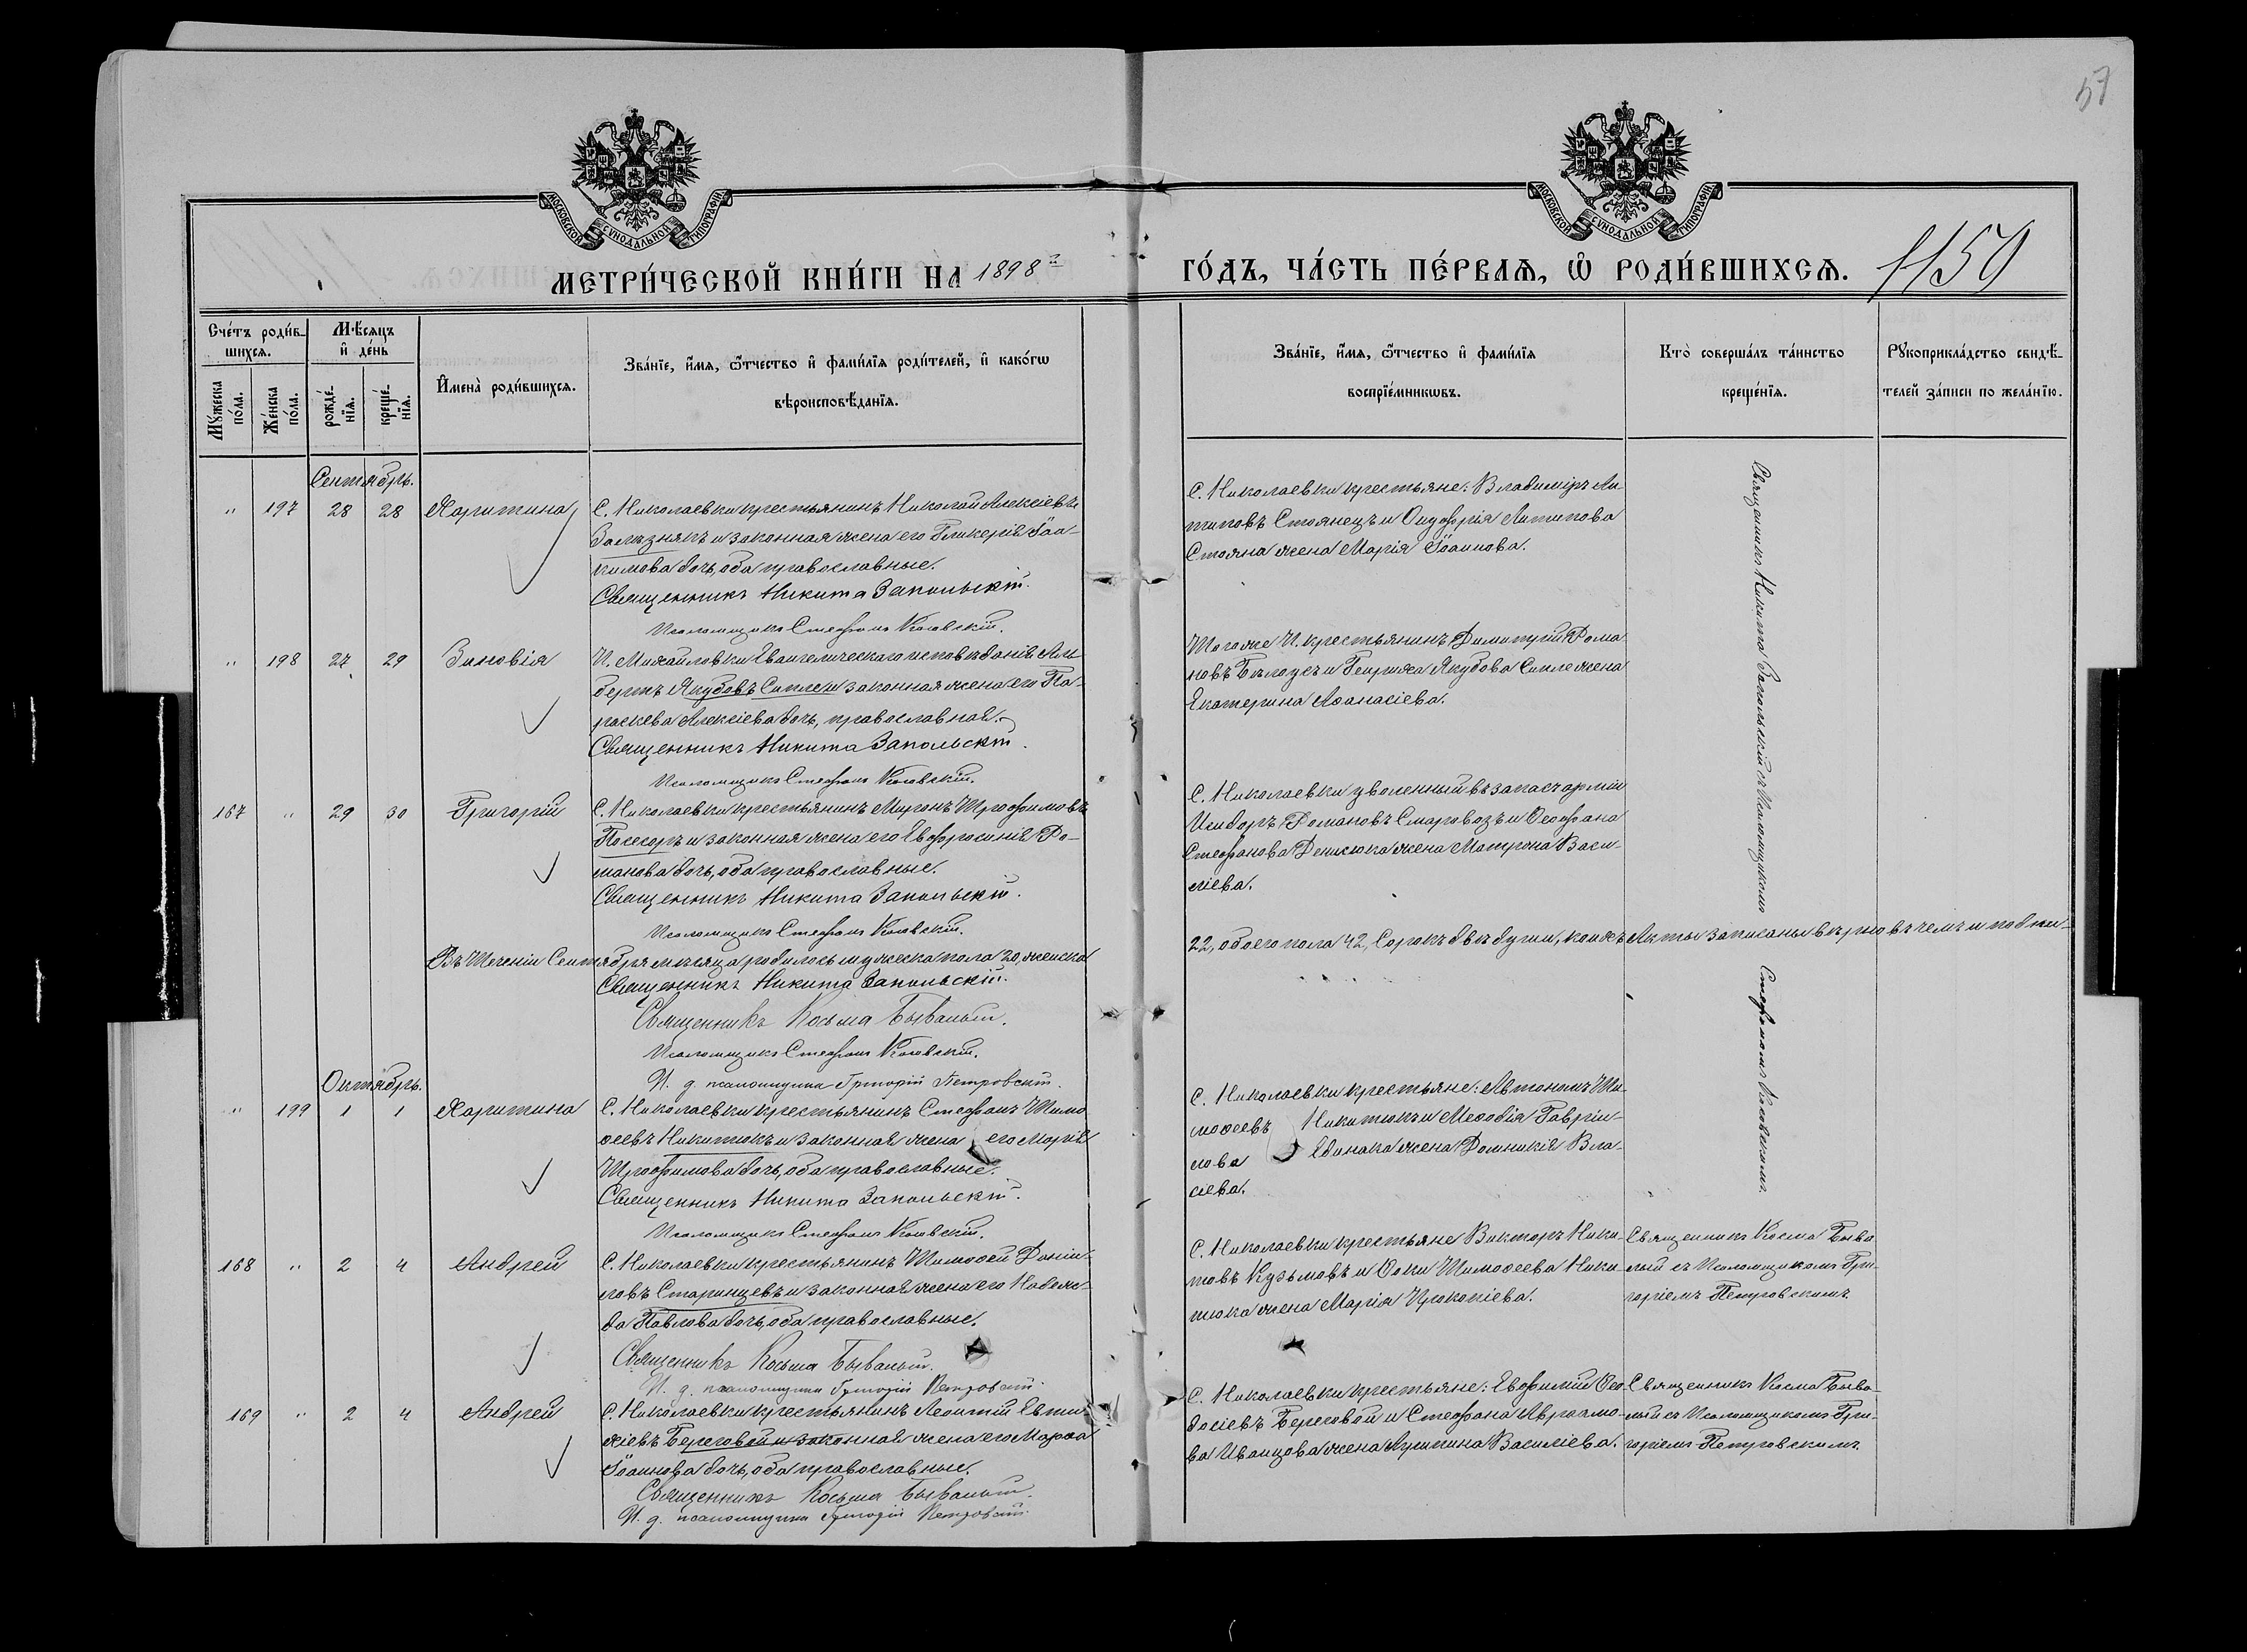 57
МОСКОВСКОЙ СѴНОДАЛЬНОЙ ТИПОГРАФІИ
МОСКОВСКОЙ СѴНОДАЛЬНОЙ ТИПОГРАФІИ
МЕТРИ́ЧЕСКОЙ КНИ́ГИ НА 1898 й ГО́ДЪ, ЧА́СТЬ ПЕ́РВАѦ, Ѡ҆ РОДИ́ВШИХСѦ.
1159
Сче́тъ роди́в-
шихсѧ.
Мѣ́сѧцъ
и҆ де́нь
Мꙋ́жеска
по́ла.
Же́нска
по́ла.
рожде́-
нїѧ.
креще́-
нїѧ.
И҆мена̀ роди́вшихсѧ.
Зва́нїе, и҆́мѧ, ѻ҆́тчество и҆ фами́лїѧ роди́телей, и҆ како́гѡ
вѣроисповѣ́данїѧ.
Зва́нїе, и҆́мѧ, ѻ҆́тчество и҆ фами́лїѧ
воспрїе́мникѡвъ.
Кто̀ соверша́лъ та́инство
креще́нїѧ.
Рꙋкоприкла́дство свидѣ́-
телей за́писи по жела́нїю.
Сентябрь.
" 197 28 28 Харитина
С. Николаевки крестьянинъ Николай Алексіевъ
Зализнякъ и законная жена его Гликерія Іоа-
кимова дочь, оба православные.
Священникъ Никита Запольскій.
Псаломщикъ Стефанъ Косовскій.
С. Николаевки крестьяне: Владиміръ Ан-
типовъ Стоянецъ и Онуфрія Антипова
Стояна жена Марія Іоаннова.
" 198 27 29 Зиновія
И. Михайловки Евангелическаго исповѣданія Аль-
бертъ Якубовъ Сипле и законная жена его Па-
раскева Алексіева дочь, православная.
Священникъ Никита Запольскій.
Псаломщикъ Стефанъ Косовскій.
Того же И. крестьянинъ Димитрій Рома
новъ Бѣлоусъ и Генриха Якубова Сипле жена
Екатерина Аѳанасіева.
167 " 29 30 Григорій
С. Николаевки крестьянинъ Миронъ Трофимовъ
Посесоръ и законная жена его Евфросинія Ро-
манова дочь, оба православные.
Священникъ Никита Запольскій.
Псаломщикъ Стефанъ Косовскій.
С. Николаевки уволенный въ запасъ арміи
Исидоръ Романовъ Старовозъ и Ѳеофана
Стефанова Денисюка жена Матрона Васи-
ліева.
Священникъ Никита Запольскій съ Псаломщикомъ Стефаномъ Косовскимъ.
Въ теченіи Сентября мѣсяца родилось мужеска пола 20, женска
22, обоего пола 42, Сорокъ двѣ души, коихъ Акты записаны вѣрно въ чемъ и подпи-
Священникъ Никита Запольскій.
Священникъ Косьма Бывалый.
Псаломщикъ Стефанъ Косовскій.
И. д. псаломщика Григорій Петровскій.
Октябрь.
" 199 1 1 Харитина
С. Николаевки крестьянинъ Стефанъ Тимо
ѳеевъ Никитюкъ и законная жена его Марія
Трофимова дочь, оба православные.
Священникъ Никита Запольскій.
Псаломщикъ Стефанъ Косовскій.
С. Николаевки крестьяне: Автономъ Ти-
моѳеевъ Никитюкъ и Меѳодія Гаврии-
лова Единака жена Домникія Вла-
сіева.
168 " 2 4 Андрей
С. Николаевки крестьянинъ Тимоѳей Даніи-
ловъ Старинцевъ и законная жена его Надеж-
да Павлова дочь, оба православные.
Священникъ Косьма Бывалый.
И. д. псаломщика Григорій Петровскій.
С. Николаевки крестьяне Викторъ Ники-
товъ Кузьмовъ и Ѳоки Тимоѳеева Ники-
тюка жена Марія Прокопіева.
Священникъ Косма Быва
лый съ Псаломщикомъ Гри-
горіемъ Петровскимъ.
169 " 2 4 Андрей
С. Николаевки крестьянинъ Леонтій Евти-
хіевъ Береговой и законная жена его Марѳа
Іоаннова дочь, оба православные.
Священникъ Косьма Бывалый.
И. д. псаломщика Григорій Петровскій.
С. Николаевки крестьяне: Евфимій Ѳео-
досіевъ Береговой и Стефана Авраамо-
ва Иванцова жена Агрипина Василіева.
Священникъ Косма Быва-
лый съ Псаломщикомъ Гри-
горіемъ Петровскимъ.